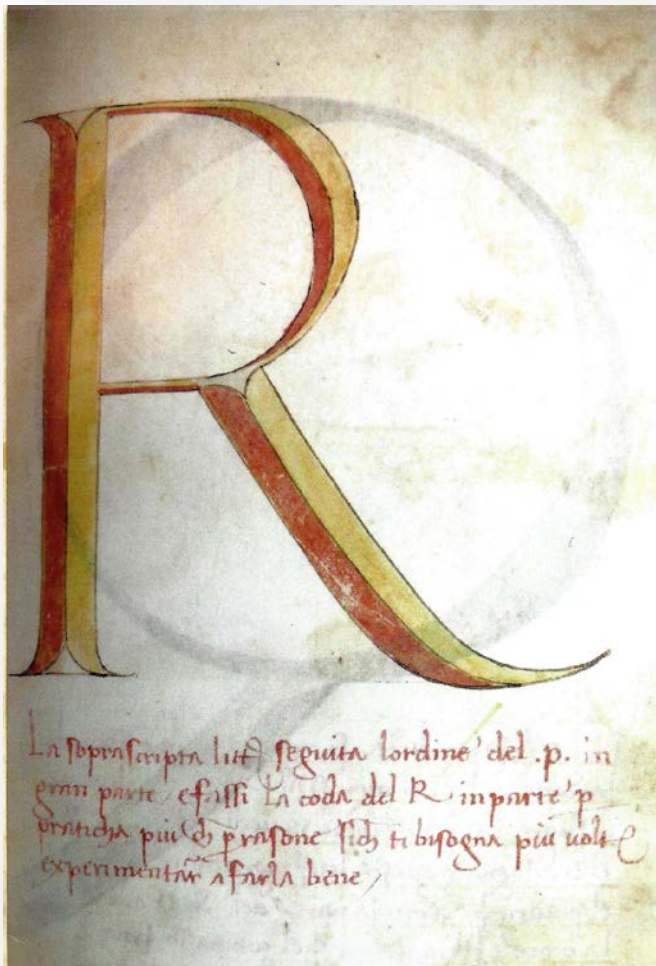 R
La soprascripta litt seguita lordine del .p. in
gran parte e fassi La coda del R in parte p
praticha piu ch p rasone sich ti bisogna piu volte
experimentar a farla bene